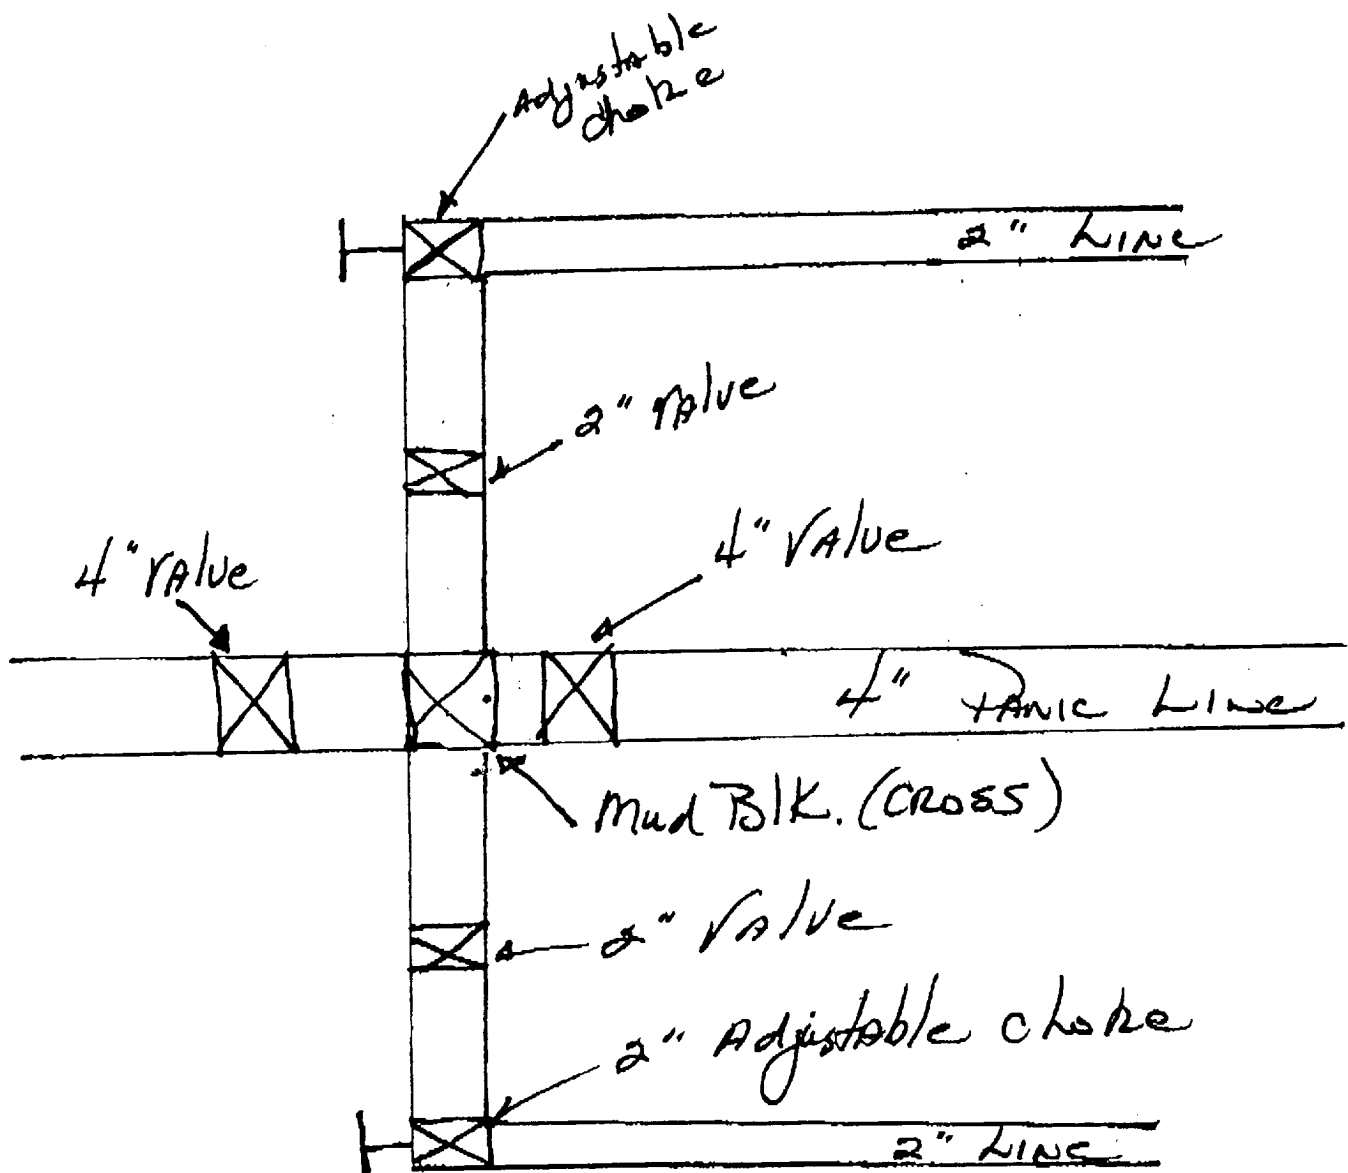 Adjustable
choke
2" LINE
2" Valve
4" Valve
4" Valve
4" PANIC LINE
Mud Blk. (CROSS)
2" Valve
2" Adjustable choke
2" LINE